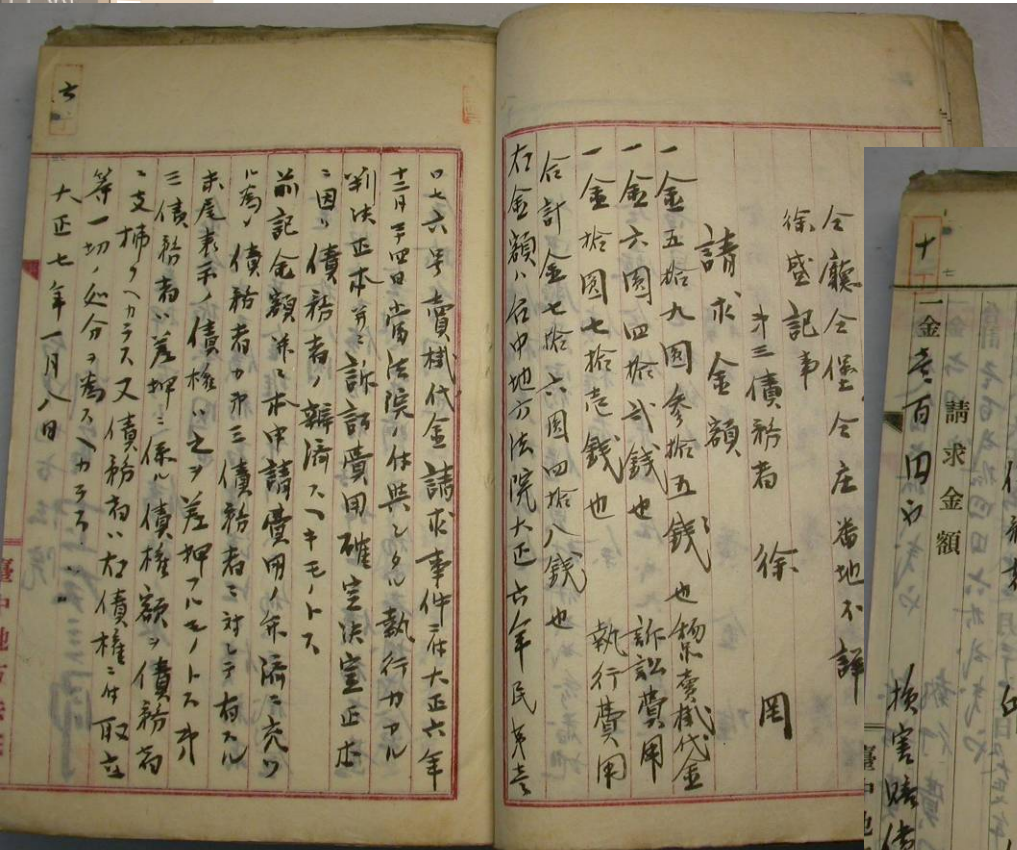 仝廳仝堡仝庄番地不詳
徐盛記事
第三債務者 徐 岡
請求金額
一金五拾九圓參拾五錢也 賣掛代金
一金六圓四拾弐錢也 訴訟費用
一金拾圓七拾壱錢也 執行費用
合計金七拾六圓四拾八錢也
右金額ハ台中地方法院大正六年民第壱
六
口七六号賣掛代金請求事件ニ付大正六年
十二月 四日當法院ノ付與シタル執行力アル
判決正本并ニ訴訟費用確定決定正本
ニ因リ債務者ノ辨濟スヘキモノトス
前記金額並ニ本申請費用ノ弁濟ニ充ツ
ル為メ債務者カ第三債務者ニ対シテ有スル
末尾表示ノ債権ハ之ヲ差押フルモノトス第
三債務者ハ差押ニ係ル債権額ヲ債務者
ニ支拂フヘカラス又債務者ハ右債権ニ付取立
等一切ノ処分ヲ為スヘカラス
大正七年一月八日
臺中地方法院
十
請求金額
一金壱百四
損害賠償
臺中地